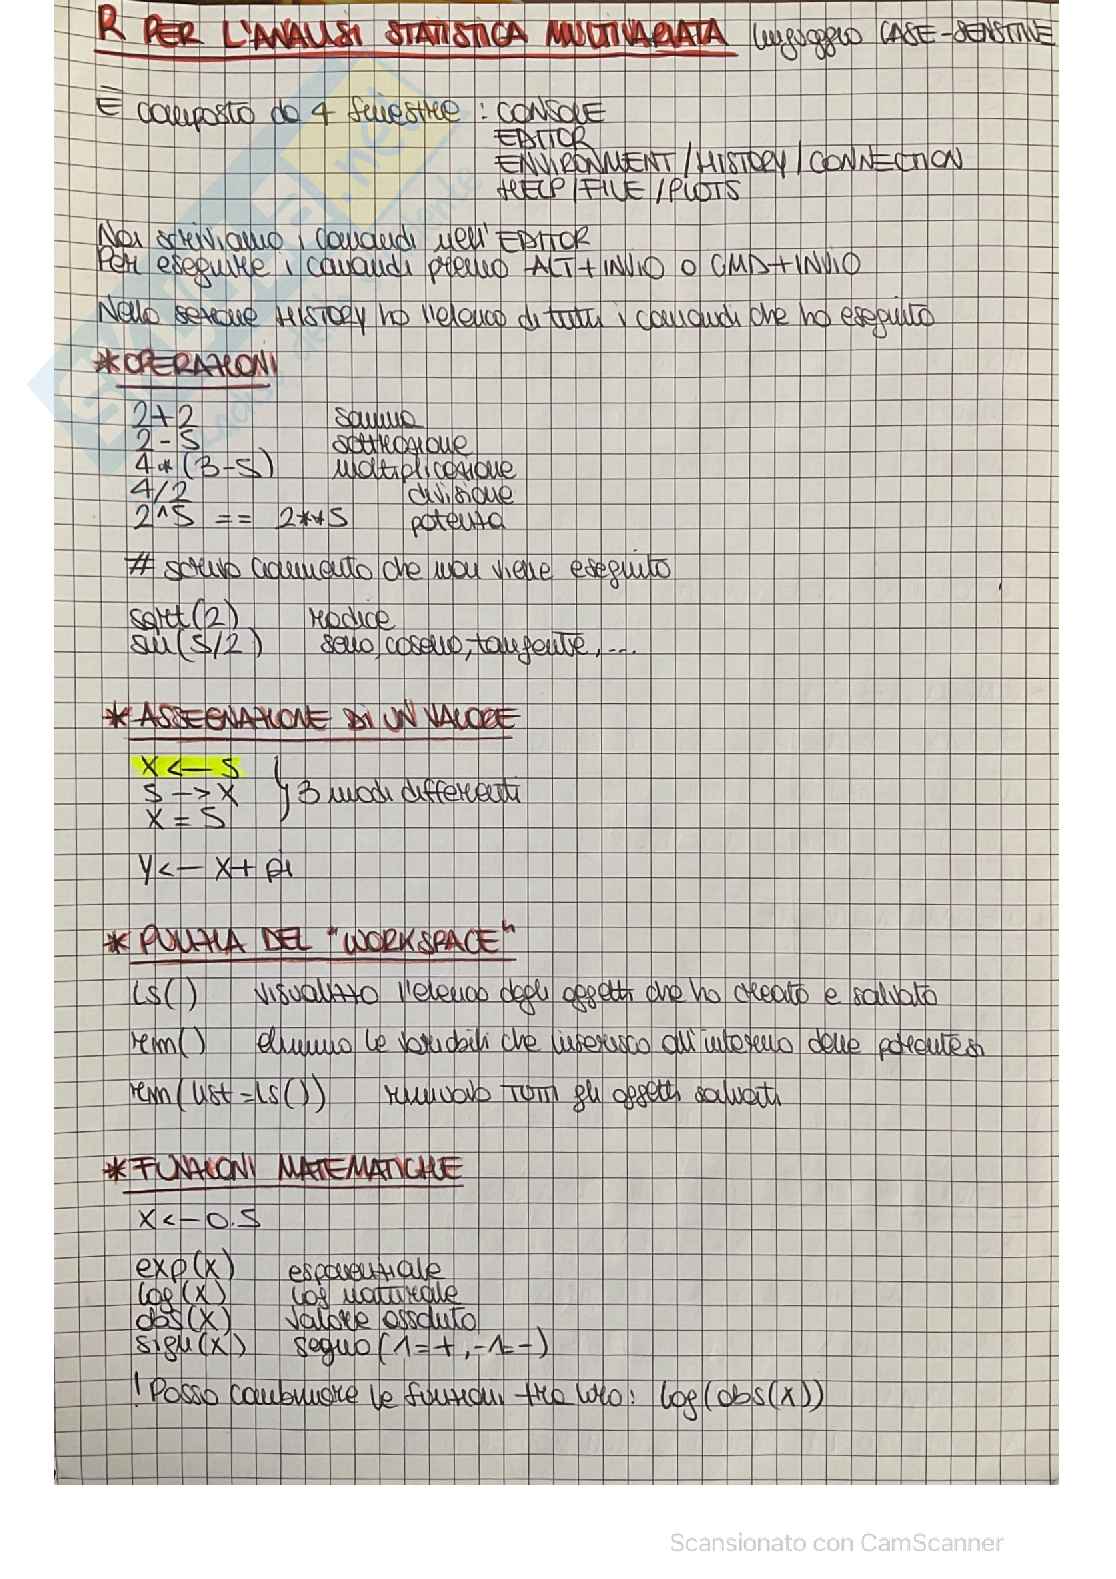 R PER L'ANALISI STATISTICA MULTIVARIATA linguaggio CASE-SENSITIVE
È composto da 4 finestre : CONSOLE
EDITOR
ENVIRONMENT / HISTORY / CONNECTION
HELP / FILE / PLOTS
Noi scriviamo i comandi nell'EDITOR
Per eseguire i comandi premo ALT+INVIO o CMD+INVIO
Nella sezione HISTORY ho l'elenco di tutti i comandi che ho eseguito
* OPERAZIONI
2+2 somma
2-5 sottrazione
4*(3-5) moltiplicazione
4/2 divisione
2^5 == 2**5 potenza
# scrivo commento che non viene eseguito
sqrt(2) radice
sin(5/2) seno, coseno, tangente, ...
* ASSEGNAZIONE DI UN VALORE
X <- 5
5 -> X } 3 modi differenti
X = 5
Y <- X + pi
* PULIZIA DEL "WORKSPACE"
ls() visualizzo l'elenco degli oggetti che ho creato e salvato
rem() elimino le variabili che inserisco all'interno delle parentesi
rem(list=ls()) rimuovo TUTTI gli oggetti salvati
* FUNZIONI MATEMATICHE
X <- 0.5
exp(x) esponenziale
log(x) log naturale
abs(x) valore assoluto
sign(x) segno (1=+, -1=-)
! Posso combinare le funzioni tra loro: log(abs(x))
Scansionato con CamScanner